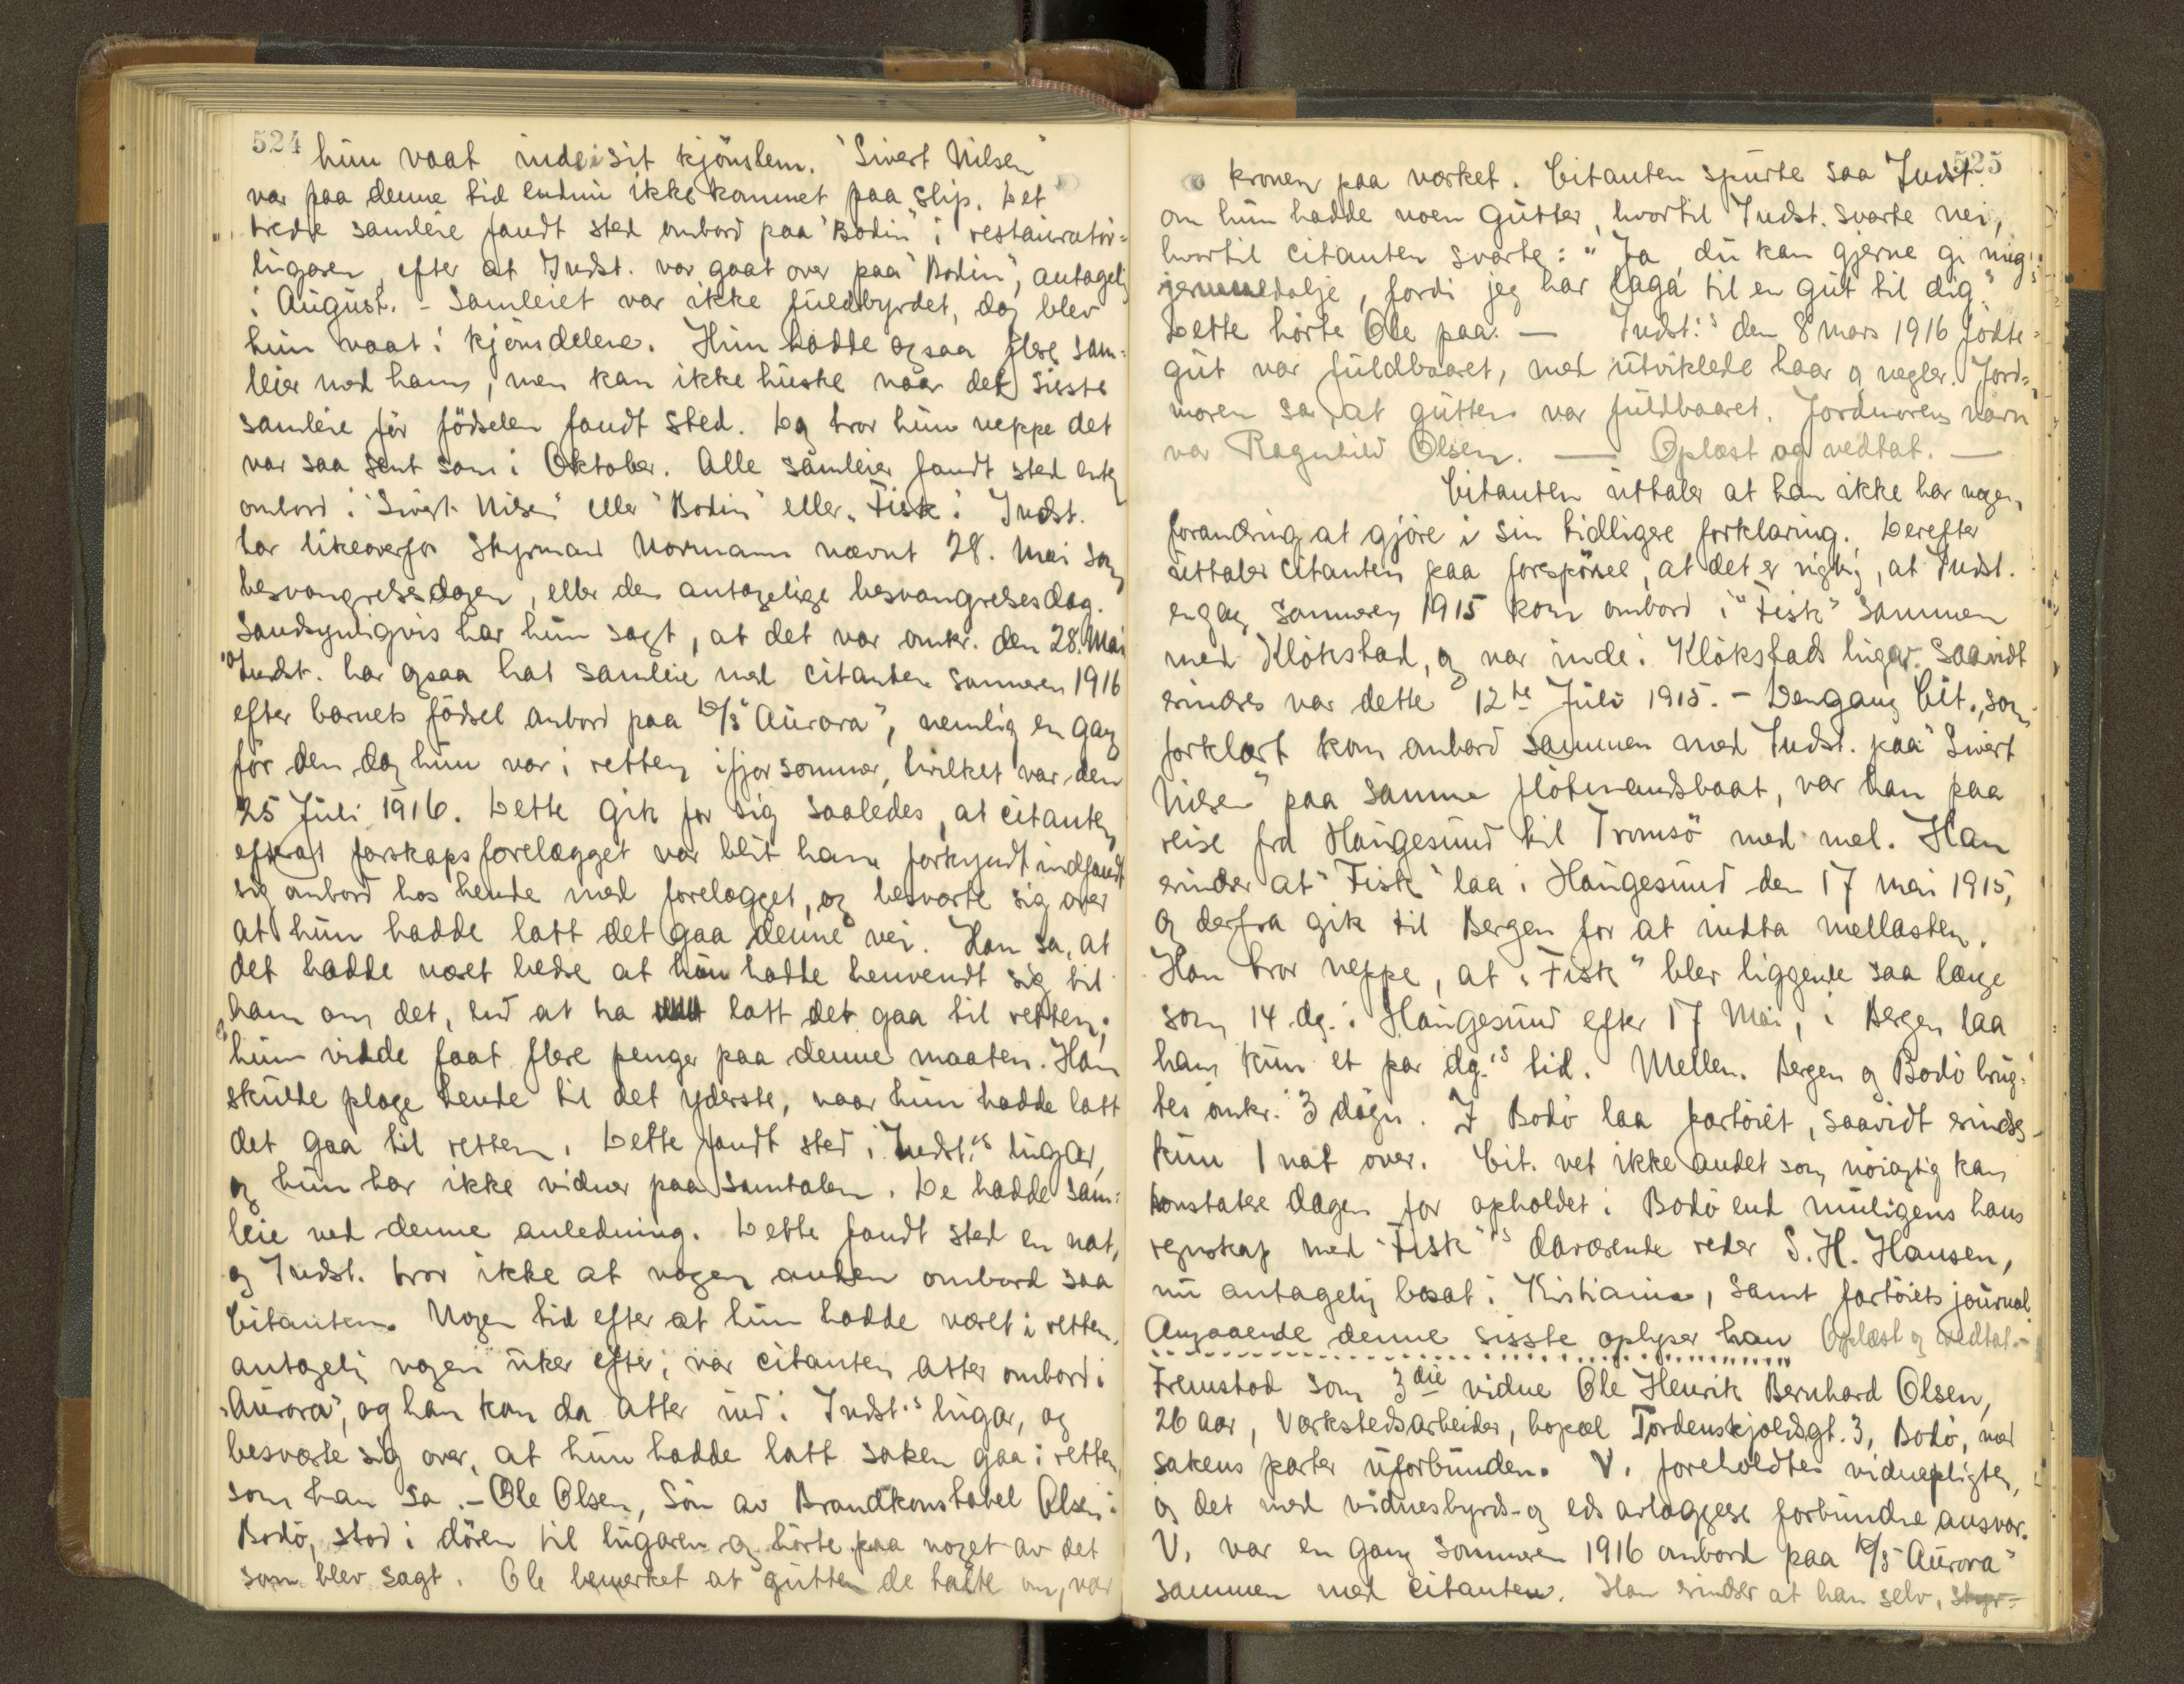 524
hun vaat inde i sit kjönslem. "Sivert Nilsen"
var paa denne tid endnu ikke kommet paa slip. Det
tredje samleie fandt sted ombord paa "Bodin" i restauratör=
lugaren, efter at Indst. var gaat over paa "Bodin", antagelig
i August. - Samleiet var ikke fuldbyrdet, dog blev
hun vaat i kjönsdelene. Hun hadde ogsaa flere sam=
leier med ham, men kan ikke huske naar det sisste
samleie för födselen fandt sted. Dog tror hun neppe det
var saa sent som i Oktober. Alle samleier fandt sted enten
ombord i "Sivert Nilsen" eller "Bodin" eller "Fisk". Indst.
har likeoverfor styrmand Normann nævnt 28. Mai som
besvangrelsesdagen, eller den antagelige besvangrelsesdag.
Sandsynligvis har hun sagt, at det var omkr. den 28. Mai
Indst. har ogsaa hat samleie med citanten sommeren 1916
efter barnets födsel ombord paa D/S "Aurora", nemlig en gang
för den dag hun var i retten ifjor sommer, hvilket var den
25 Juli 1916. Dette gik for sig saaledes, at citanten
efterat farskapsforelægget var blit ham forkyndt indfandt
sig ombord hos hende med forelægget, og besværte sig over
at hun hadde latt det gaa denne vei. Han sa, at
det hadde været bedre at hun hadde henvendt sig til
ham om det, end at ha latt det gaa til retten;
hun vilde faat flere penger paa denne maaten. Han
skulde plage hende til det yderste, naar hun hadde latt
det gaa til retten. Dette fandt sted i Indst.'s lugar,
og hun har ikke vidner paa samtalen. De hadde sam=
leie ved denne anledning. Dette fandt sted en nat,
og Indst. tror ikke at nogen anden ombord saa
Citanten. Nogen tid efter at hun hadde været i retten,
antagelig nogen uker efter, var citanten atter ombord i
"Aurora", og han kom da atter ind i Indst's lugar, og
besværte sig over, at hun hadde latt saken gaa i retten,
som han sa. - Ole Olsen, Sön av Brandkonstabel Olsen i
Bodö, stod i dören til lugaren og hörte paa noget av det
som blev sagt. Ole bemerket at gutten de talte om, var
525
kronen paa verket. Citanten spurte saa Indst.
om hun hadde noen gutter, hvortil Indst. svarte nei,
hvortil citanten svarte: "Ja, du kan gjerne gi mig
jernmedalje, fordi jeg har laga til en gut til dig."
Dette hörte Ole paa. — Indst.'s den 8 mars 1916 födte
gut var fuldbaaret, med utviklede haar og negler. Jord=
moren sa, at gutten var fuldbaaret. Jordmorens navn
var Ragnhild Olsen. — Oplæst og vedtat. —
Citanten uttaler at han ikke har nogen
forandring at gjöre i sin tidligere forklaring. Derefter
uttaler citanten paa forespörsel, at det er rigtig, at Indst.
engang sommeren 1915 kom ombord i "Fisk" sammen
med Klökstad, og var inde i Klökstads lugar. Saavidt
erindres var dette 12te Juli 1915. - Dengang Cit., som
forklart kom ombord sammen med Indst. paa "Sivert
Nilsen" paa samme flötmandsbaat, var han paa
reise fra Haugesund til Tromsö med mel. Han
erindrer at "Fisk" laa i Haugesund den 17 mai 1915,
og derfra gik til Bergen for at indta mellasten.
Han tror neppe, at "Fisk" blev liggende saa længe
som 14 dg. i Haugesund efter 17 Mai, i Bergen laa
han kun et par dg.'s tid. Mellem Bergen og Bodö brug=
tes omkr. 3 dögn. I Bodö laa fartöiet, saavidt erindres
kun 1 nat over. Cit. vet ikke andet som nöiagtig kan
konstatere dagen for opholdet i Bodö end muligens hans
regnskap med "Fisk"'s daværende reder S. H. Hansen,
nu antagelig bosat i Kristiania, samt fartöiets journal
Angaaende denne sisste oplyser han Oplæst og vedtat. -
Fremstod som 3die vidne Ole Henrik Bernhard Olsen,
26 aar, Verkstedsarbeider, bopæl Tordenskjoldsgt. 3, Bodö, med
sakens parter uforbunden. V. foreholdtes vidnepligten,
og det med vidnesbyrd- og eds avlæggelse forbundne ansvar.
V. var en gang sommeren 1916 ombord paa D/S "Aurora"
sammen med citanten. Han erindrer at han selv, styr=